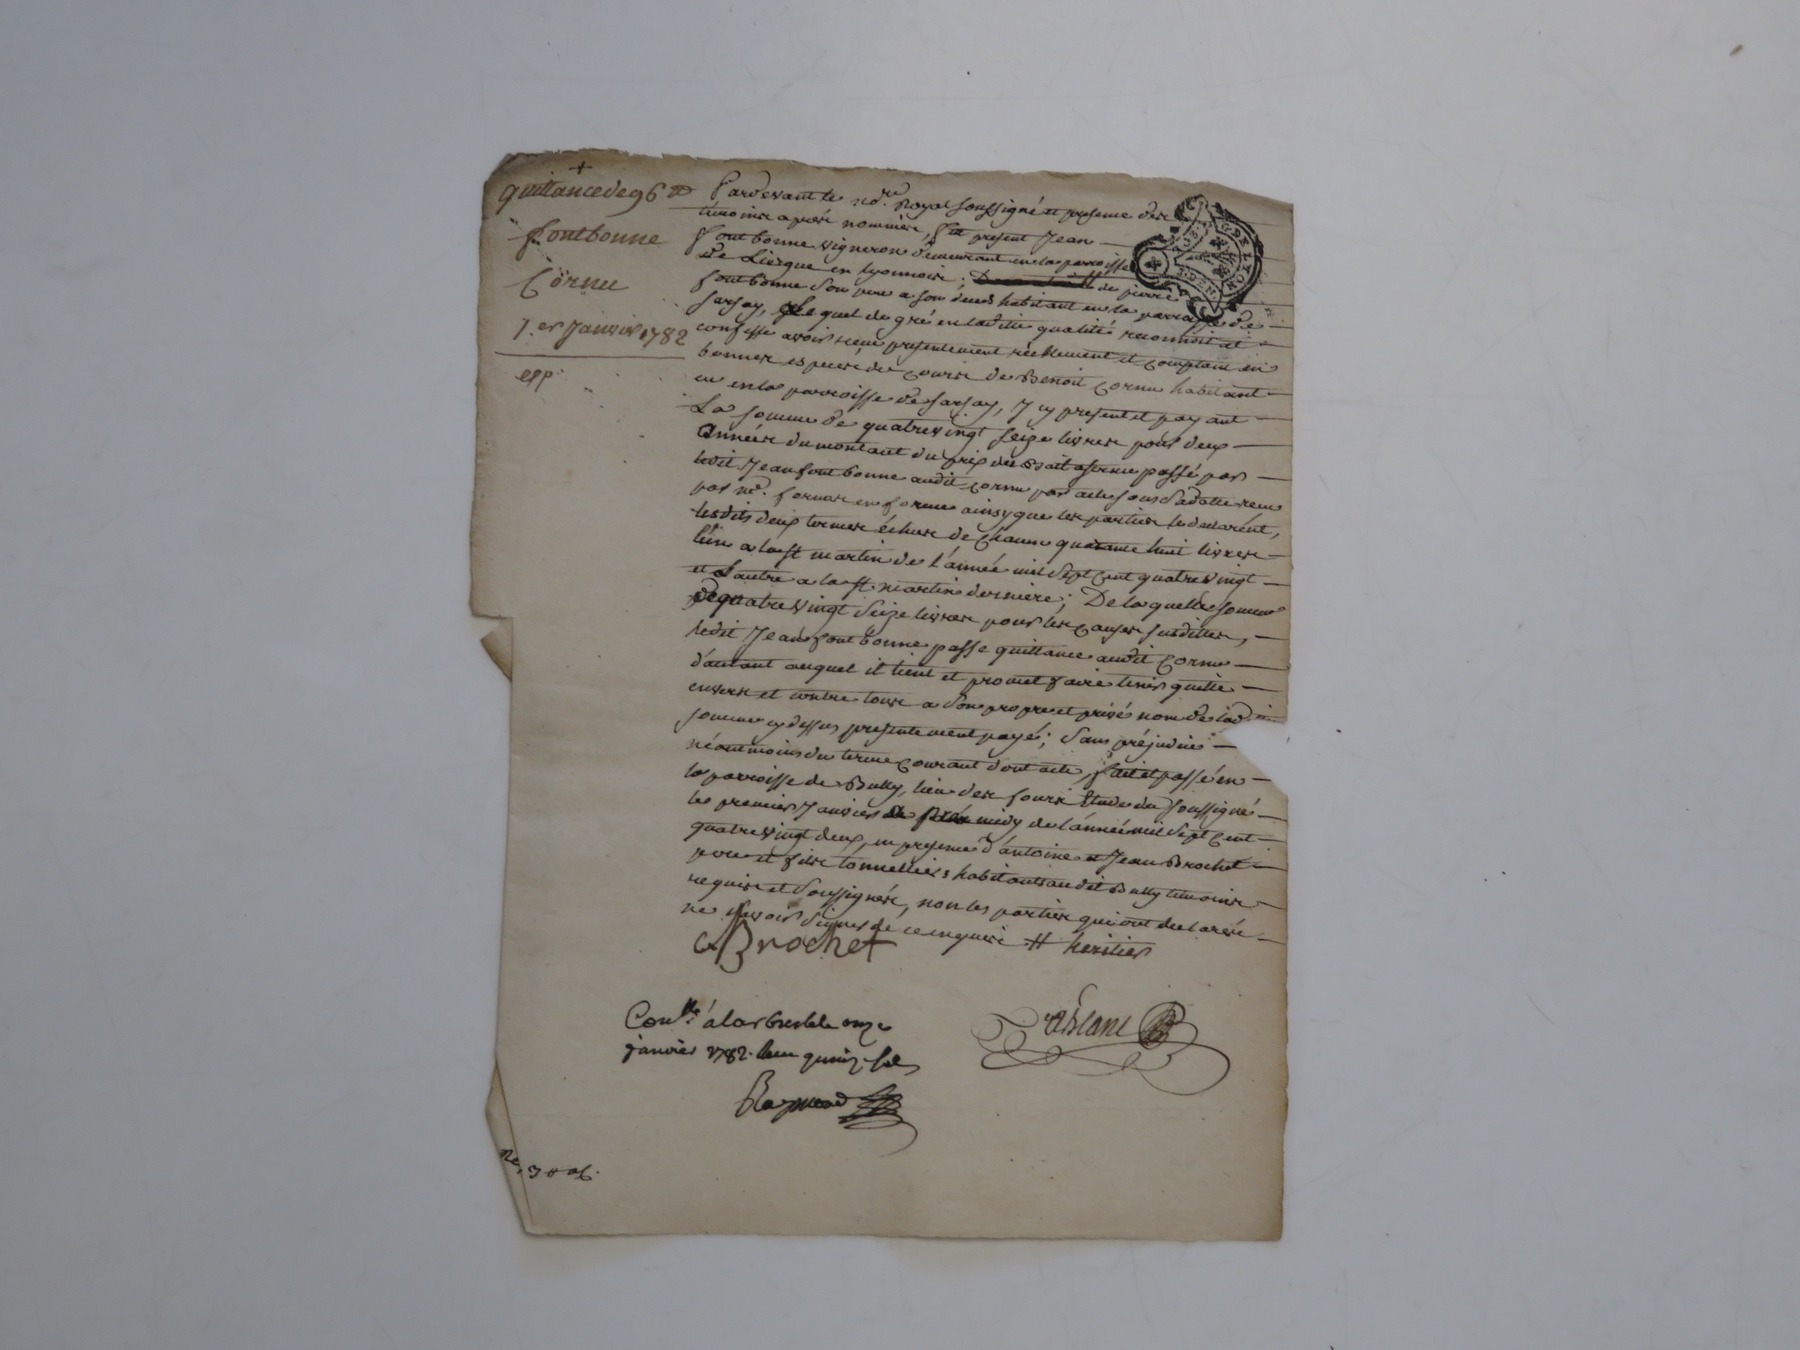 +
quittance de 96 tt
fontbonne
Cornu
1.er Janvier 1782
exp
Pardevant le no.re Royal soussigné et presence des
témoins après nommés, fut present Jean
fontbonne vigneron demeurant en la parroisse
de Liergue en lyonnois; de pierre
fontbonne son pere a son deces habitant en la parroisse de
sarsay, lequel de gré en laditte qualité reconnoit et
confesse avoir receu presentement réellement et comptant en
bonnes especes de cours de Benoit Cornu habitant
en la parroisse de sarsay, y present et payant
La somme de quatrevingt seize livres pour deux
Années du montant du prix du bail a ferme passé par
ledit Jean fontbonne audit Cornu par acte sous sa datte receu
par me. fornas en forme ainsy que les parties le declarént,
lesdits deux termes échus de chacun quarante huit livres
l'un a la st martin de l'année mil sept cent quatrevingt
et L'autre a la st martin derniere; De laquelle somme
de quatrevingt seize livres pour les causes susdittes,
ledit Jean font bonne passe quittance audit Cornu
d'autant auquel il tient et promet faire tenir quitte
envers et contre tous a son propre et privé nom de lad
somme cy dessus presentement payé; sans préjudice
néantmoins du terme courant dont acte, fait et passé en
la parroisse de Bully, lieu des fours Etude du soussigné
le premier Janvier midy de l'année mil sept cent
quatrevingt deux, en presence d'antoine et Jean Brochet
pere et fils tonneliers habitants audit Bully temoins
requis et soussignés, non les parties qui ont declarés
ne sçavoir signer de ce enquis # heritier
Brochet
Con.lle à larbresle onze
janvier 1782. Receu quinze sols
Raymond